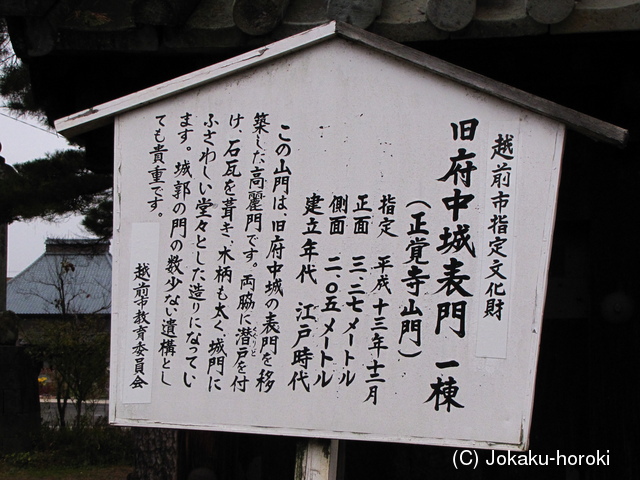 越前市指定文化財
旧府中城表門 一棟
(正覚寺山門)
指定 平成十三年十二月
正面 三.二七メートル
側面 二.〇五メートル
建立年代 江戸時代
この山門は、旧府中城の表門を移
築した高麗門です。両脇に潜戸を付
くぐりど
け、石瓦を葺き、木柄も太く、城門に
ふさわしい堂々とした造りになってい
ます。城郭の門の数少ない遺構とし
ても貴重です。
越前市教育委員会
(C) Jokaku-horoki